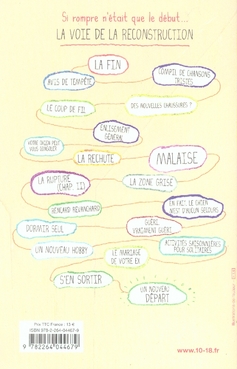 Si rompre n'était que le début...
LA VOIE DE LA RECONSTRUCTION
LA FIN
COMPIL DE CHANSONS
TRISTES
AVIS DE TEMPÊTE
LE COUP DE FIL
DES NOUVELLES CHAUSSURES ?
ENLISEMENT
GÉNÉRAL
VOTRE TALON PEUT
VOUS
LA RECHUTE
MALAISE
LA RUPTURE
(CHAP. II)
LA ZONE GRISE
RENCARD REVANCHARD
EN FAIT, LE
N'EST D'AUCUN SECOURS
GUÉRI,
VRAIMENT GUÉRI...
DORMIR SEUL
UN NOUVEAU HOBBY
ACTIVITÉS SAISONNIÈRES
POUR SOLITAIRES
LE MARIAGE
DE VOTRE EX
S'EN SORTIR
UN NOUVEAU
DÉPART
www.10-18.fr
9 782264 044679